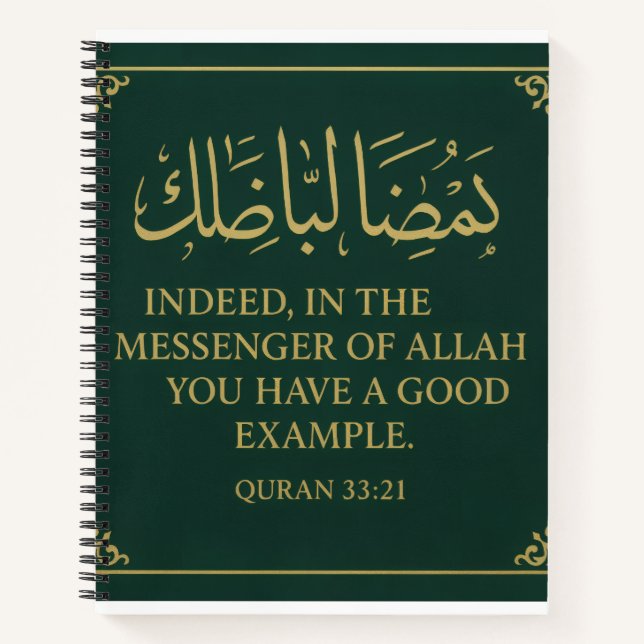 يَمُضَا لبَّاضِلك
INDEED, IN THE
MESSENGER OF ALLAH
YOU HAVE A GOOD
EXAMPLE.
QURAN 33:21